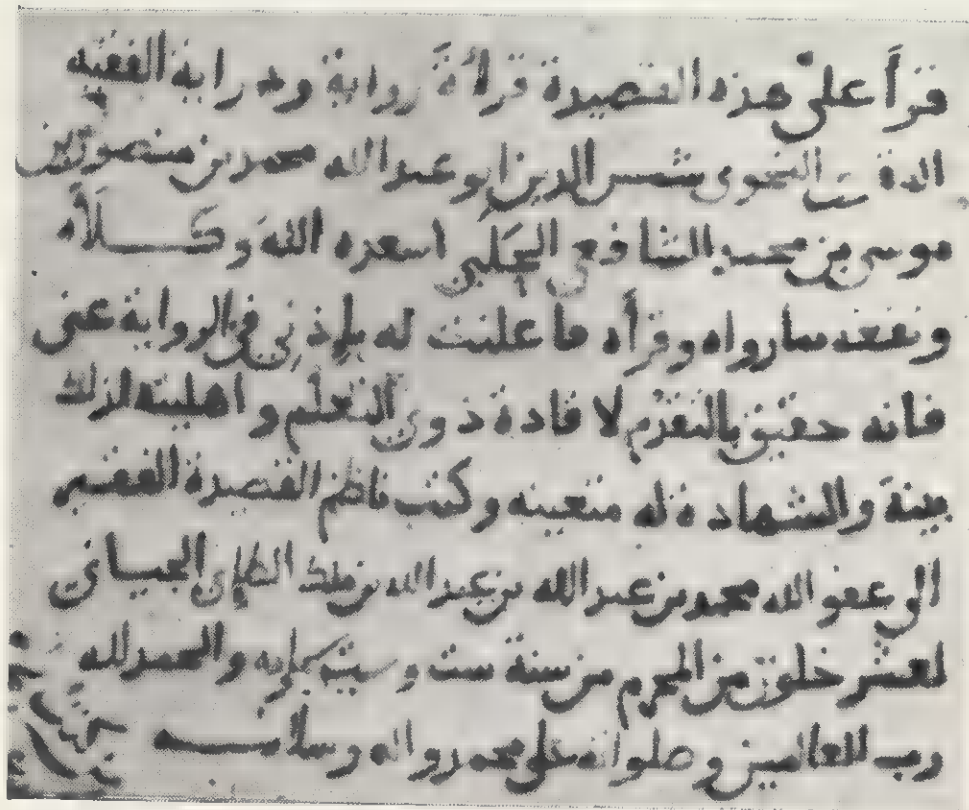 قرأ على هذه القصيدة قراءة رواية ودراية الفقيه
النحوى شمس الدين ابو عبد الله محمد بن منصور بن
موسى بن محمد الشافعى الحلبى اسعده الله وكلأه
ونفعه بما رواه وقرأه فاعلنت له بإذنى فى الرواية عنى
فانه حقيق بالتقدم لافادة ذوى التعلم واهليته لذلك
بينة والشهادة له متعينة وكتب ناظم القصيدة الفقير
الى عفو الله محمد بن عبد الله بن عبد الله بن ملك الطاىى الجيانى
لعشر خلون من المحرم من سنة ست وستين وستماية والحمد لله
رب العالمين وصلواته على محمد واله وسلامه